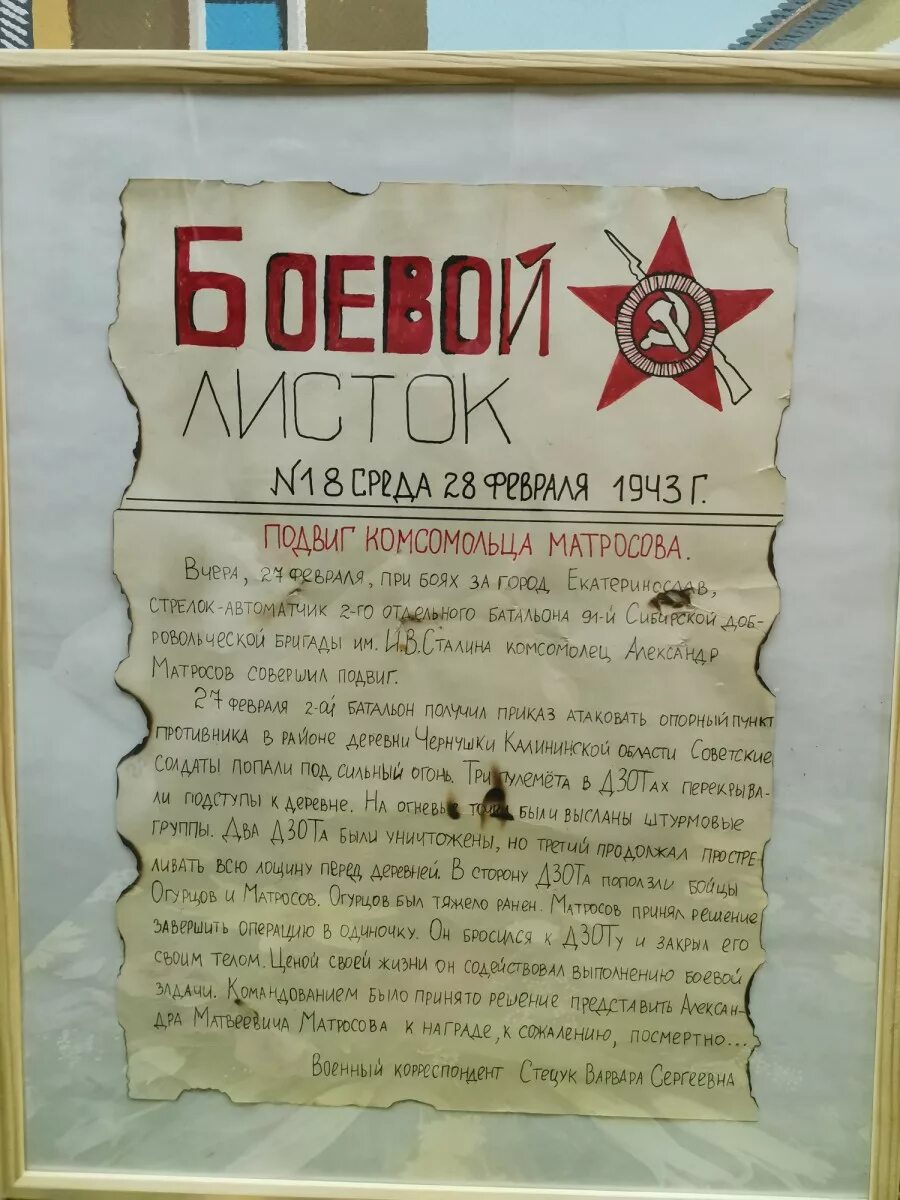 БОЕВОЙ
ЛИСТОК
№18 СРЕДА 28 ФЕВРАЛЯ 1943 Г.
ПОДВИГ КОМСОМОЛЬЦА МАТРОСОВА.
Вчера, 27 февраля, при боях за город Екатеринослав,
стрелок-автоматчик 2-го отдельного батальона 91-й Сибирской доб-
ровольческой бригады им. И.В.Сталина комсомолец Александр
Матросов совершил подвиг.
27 февраля 2-ой батальон получил приказ атаковать опорный пункт
противника в районе деревни Чернушки Калининской области Советские
солдаты попали под сильный огонь. Три пулемёта в ДЗОТах перекрыва-
ли подступы к деревне. На огневые были высланы штурмовые
группы. Два ДЗОТа были уничтожены, но третий продолжал простре-
ливать всю лощину перед деревней. В сторону ДЗОТа поползли бойцы
Огурцов и Матросов. Огурцов был тяжело ранен. Матросов принял решение
завершить операцию в одиночку. Он бросился к ДЗОТу и закрыл его
своим телом. Ценой своей жизни он содействовал выполнению боевой
здлачи. Командованием было принято решение представить Алексан-
дра Матвеевича Матросова к награде, к сожалению, посмертно...
Военный корреспондент Стецук Варвара Сергеевна